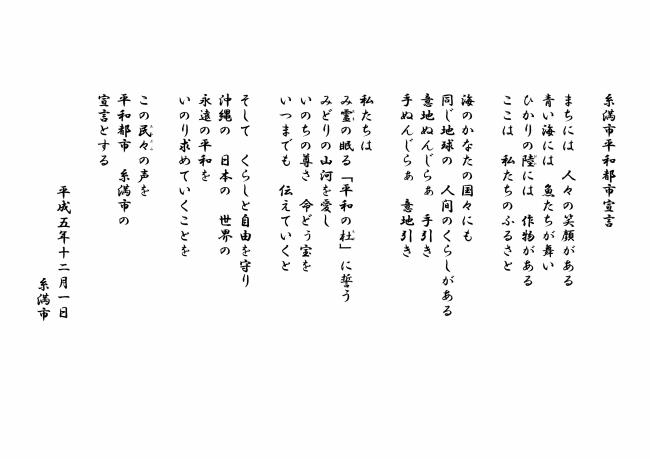 糸満市平和都市宣言
まちには　人々の笑顔がある
青い海には　魚たちが舞い
ひかりの陸には　作物がある
ここは　私たちのふるさと
海のかなたの国々にも
同じ地球の　人間のくらしがある
意地ぬんじらぁ　手引き
手ぬんじらぁ　意地引き
私たちは
み霊の眠る「平和の杜」に誓う
みどりの山河を愛し
いのちの尊さ　命どう宝を
いつまでも　伝えていくと
そして　くらしと自由を守り
沖縄の　日本の　世界の
永遠の平和を
いのり求めていくことを
この民々の声を
平和都市　糸満市の
宣言とする
平成五年十二月一日
糸満市